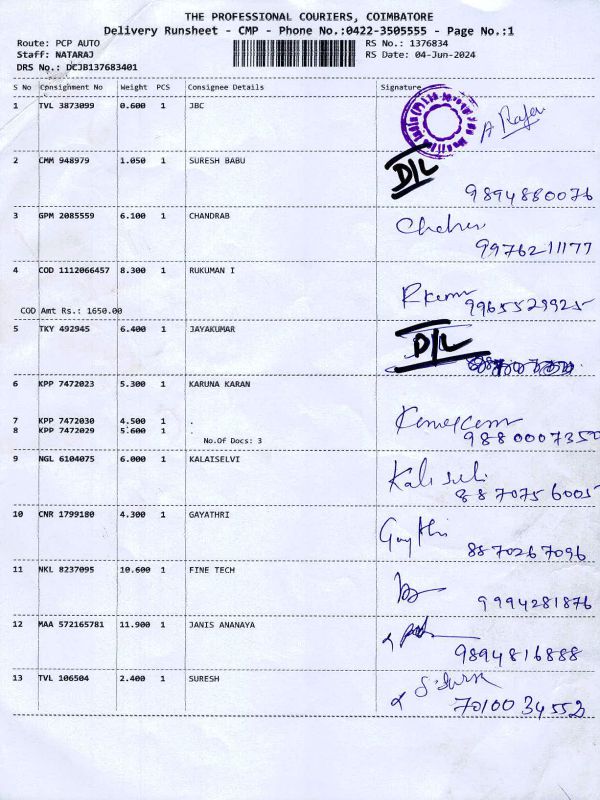 THE PROFESSIONAL COURIERS, COIMBATORE
Delivery Runsheet - CMP - Phone No.:0422-3505555 - Page No.:1
Route: PCP AUTO RS No.: 1376834
Staff: NATARAJ RS Date: 04-Jun-2024
DRS No.: DCJB137683401
S No Consignment No Weight PCS Consignee Details Signature
1 TVL 3873099 0.600 1 JBC
A Rafer
2 CMM 948979 1.050 1 SURESH BABU D/L
9894880076
3 GPM 2085559 6.100 1 CHANDRAB
9976211177
4 COD 1112066457 8.300 1 RUKUMAN I
9965529925
COD Amt Rs.: 1650.00
5 TKY 492945 6.400 1 JAYAKUMAR D/L
6 KPP 7472023 5.300 1 KARUNA KARAN
7 KPP 7472030 4.500 1 .
8 KPP 7472029 5.600 1 .
No.Of Docs: 3 9880007350
9 NGL 6104075 6.000 1 KALAISELVI
8870756005
10 CNR 1799180 4.300 1 GAYATHRI
8870267096
11 NKL 8237095 10.600 1 FINE TECH
9994281876
12 MAA 572165781 11.900 1 JANIS ANANAYA
9894816888
13 TVL 106504 2.400 1 SURESH
7010034552